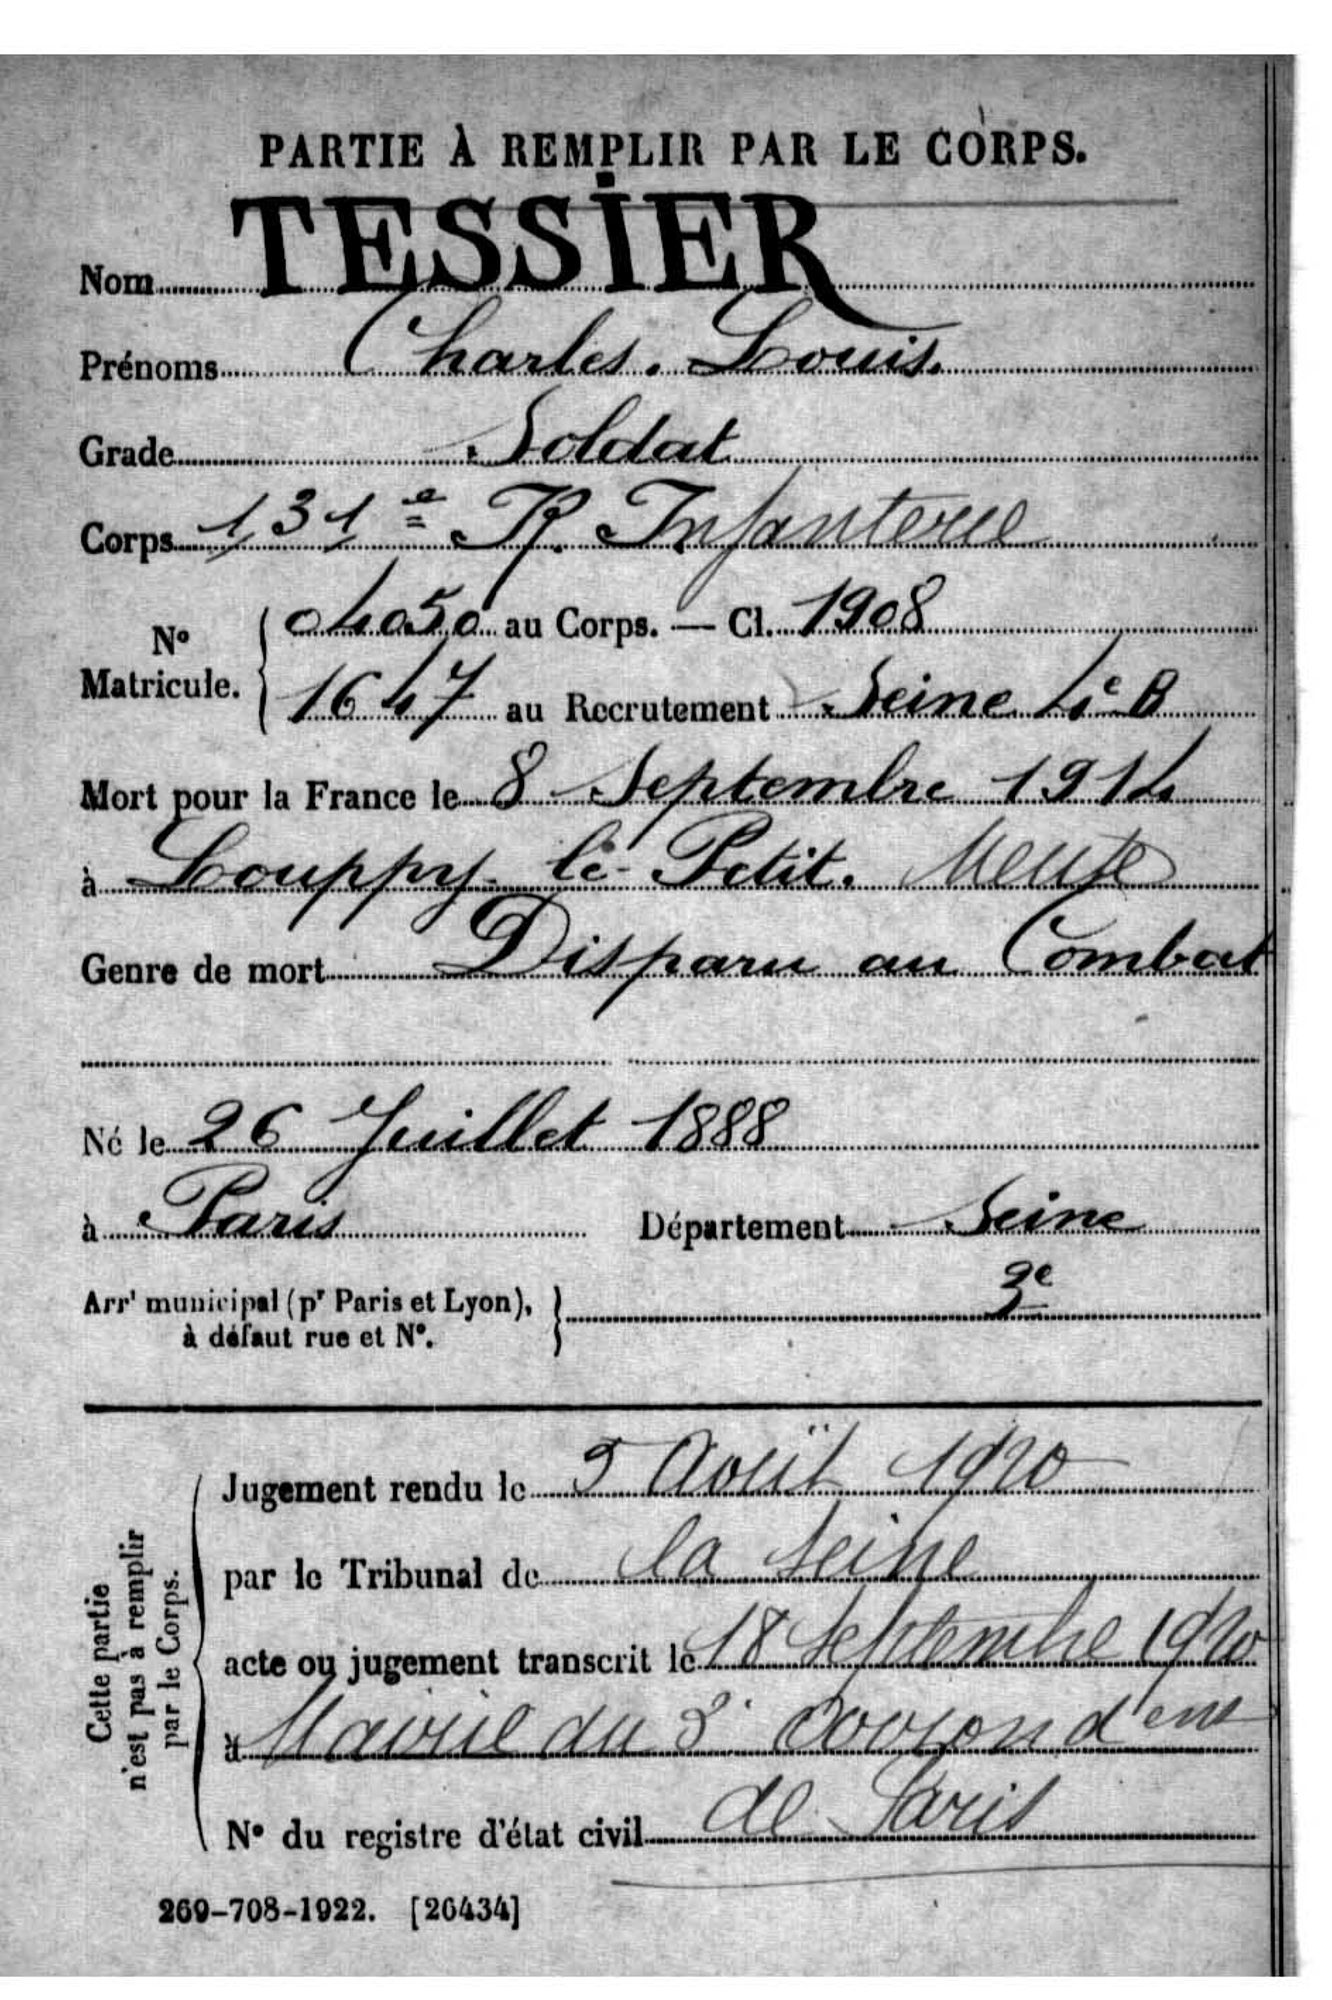 PARTIE À REMPLIR PAR LE CORPS.
Nom TESSIER
Prénoms Charles. Louis.
Grade Soldat
Corps 131e R. Infanterie
No Matricule. 04050 au Corps. — Cl. 1908
1647 au Recrutement Seine 4e B
Mort pour la France le 8 Septembre 1914
à Louppy-le-Petit. Meuse
Genre de mort Disparu au Combat
Né le 26 Juillet 1888
à Paris Département Seine
Arrt municipal (pr Paris et Lyon), à défaut rue et No. 3e
Cette partie n'est pas à remplir par le Corps.
Jugement rendu le Août 1920
par le Tribunal de la Seine
acte ou jugement transcrit le 18 Septembre 1920
à Mairie du arrondent
de Paris
No du registre d'état civil
269-708-1922. [26434]